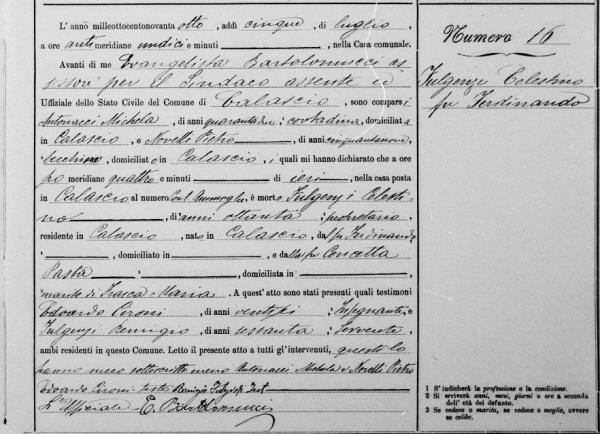 L' anno milleottocentonovanta otto, addì cinque di luglio,
a ore anti meridiane undici e minuti, nella Casa comunale.
Avanti di me Evangelista Bartolomucci as
sessore per il Sindaco assente ed
Uffiziale dello Stato Civile del Comune di Calascio, sono comparsi
Antonacci Michela, di anni quarantadue, contadina, domiciliata
in Calascio, e Novelli Pietro, di anni cinquantanove
domiciliato in Calascio, i quali mi hanno dichiarato che a ore
po meridiane quattro e minuti di ieri, nella casa posta
in Calascio al numero, è morto Fulgenzi Celesti-
no, di anni ottanta, proprietario
residente in Calascio, nato in Calascio, da fu Ferdinando
, domiciliato in, e da fu Concetta
Pasta, domiciliata in
marito di Frasca Maria. A quest' atto sono stati presenti quali testimoni
Edoardo Cironi, di anni, Insegnante, e
Fulgenzi Remigio, di anni sessanta, Servente,
ambi residenti in questo Comune. Letto il presente atto a tutti gl' intervenuti, questi lo
hanno meco sottoscritto meno Antonacci Michela e Novelli Pietro
Edoardo Cironi teste Remigio Fulgenzi Test
L' Uffiziale E. Bartolomucci
Numero 16
Fulgenzi Celestino
fu Ferdinando
1 S' indicherà la professione o la condizione.
2 Si scriverà anni, mesi, giorni o ore a seconda
dell' età del defunto.
3 Se vedovo o marito, se vedova o moglie, ovvero
se celibe.